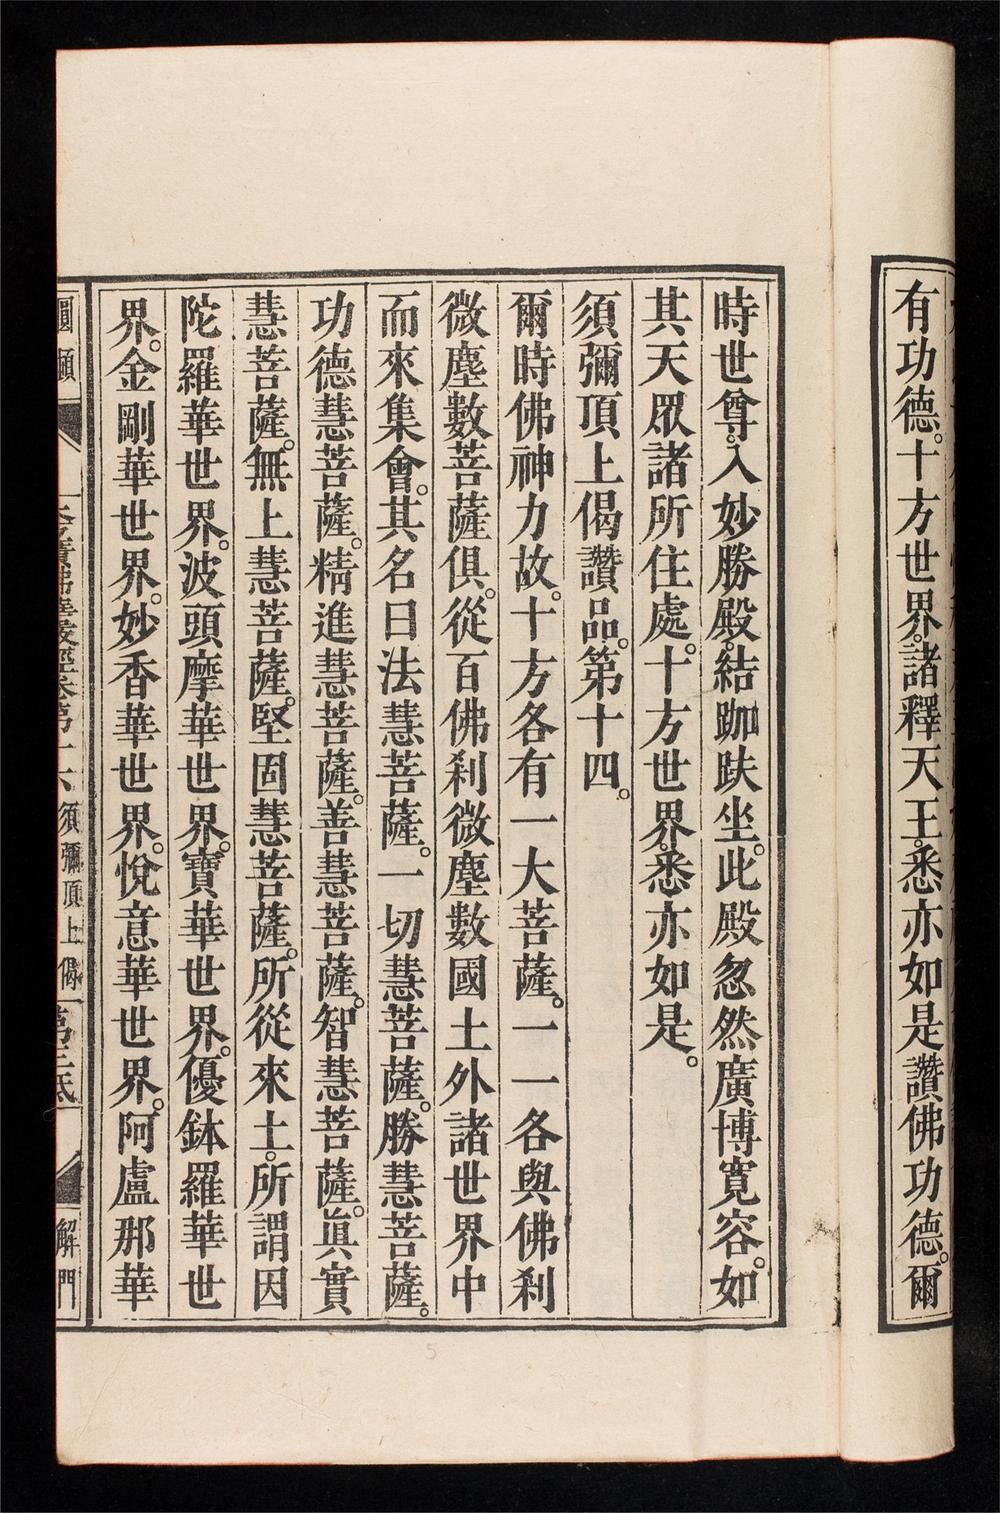 有功德。十方世界。諸釋天王。悉亦如是讚佛功德。爾
時世尊。入妙勝殿。結跏趺坐。此殿忽然廣博寬容。如
其天眾諸所住處。十方世界。悉亦如是。
須彌頂上偈讚品。第十四。
爾時佛神力故。十方各有一大菩薩。一一各與佛剎
微塵數菩薩俱。從百佛剎微塵數國土外諸世界中
而來集會。其名曰法慧菩薩。一切慧菩薩。勝慧菩薩。
功德慧菩薩。精進慧菩薩。善慧菩薩。智慧菩薩。真實
慧菩薩。無上慧菩薩。堅固慧菩薩。所從來土。所謂因
陀羅華世界。波頭摩華世界。寶華世界。優鉢羅華世
界。金剛華世界。妙香華世界。悅意華世界。阿盧那華
須彌頂上偈
解門